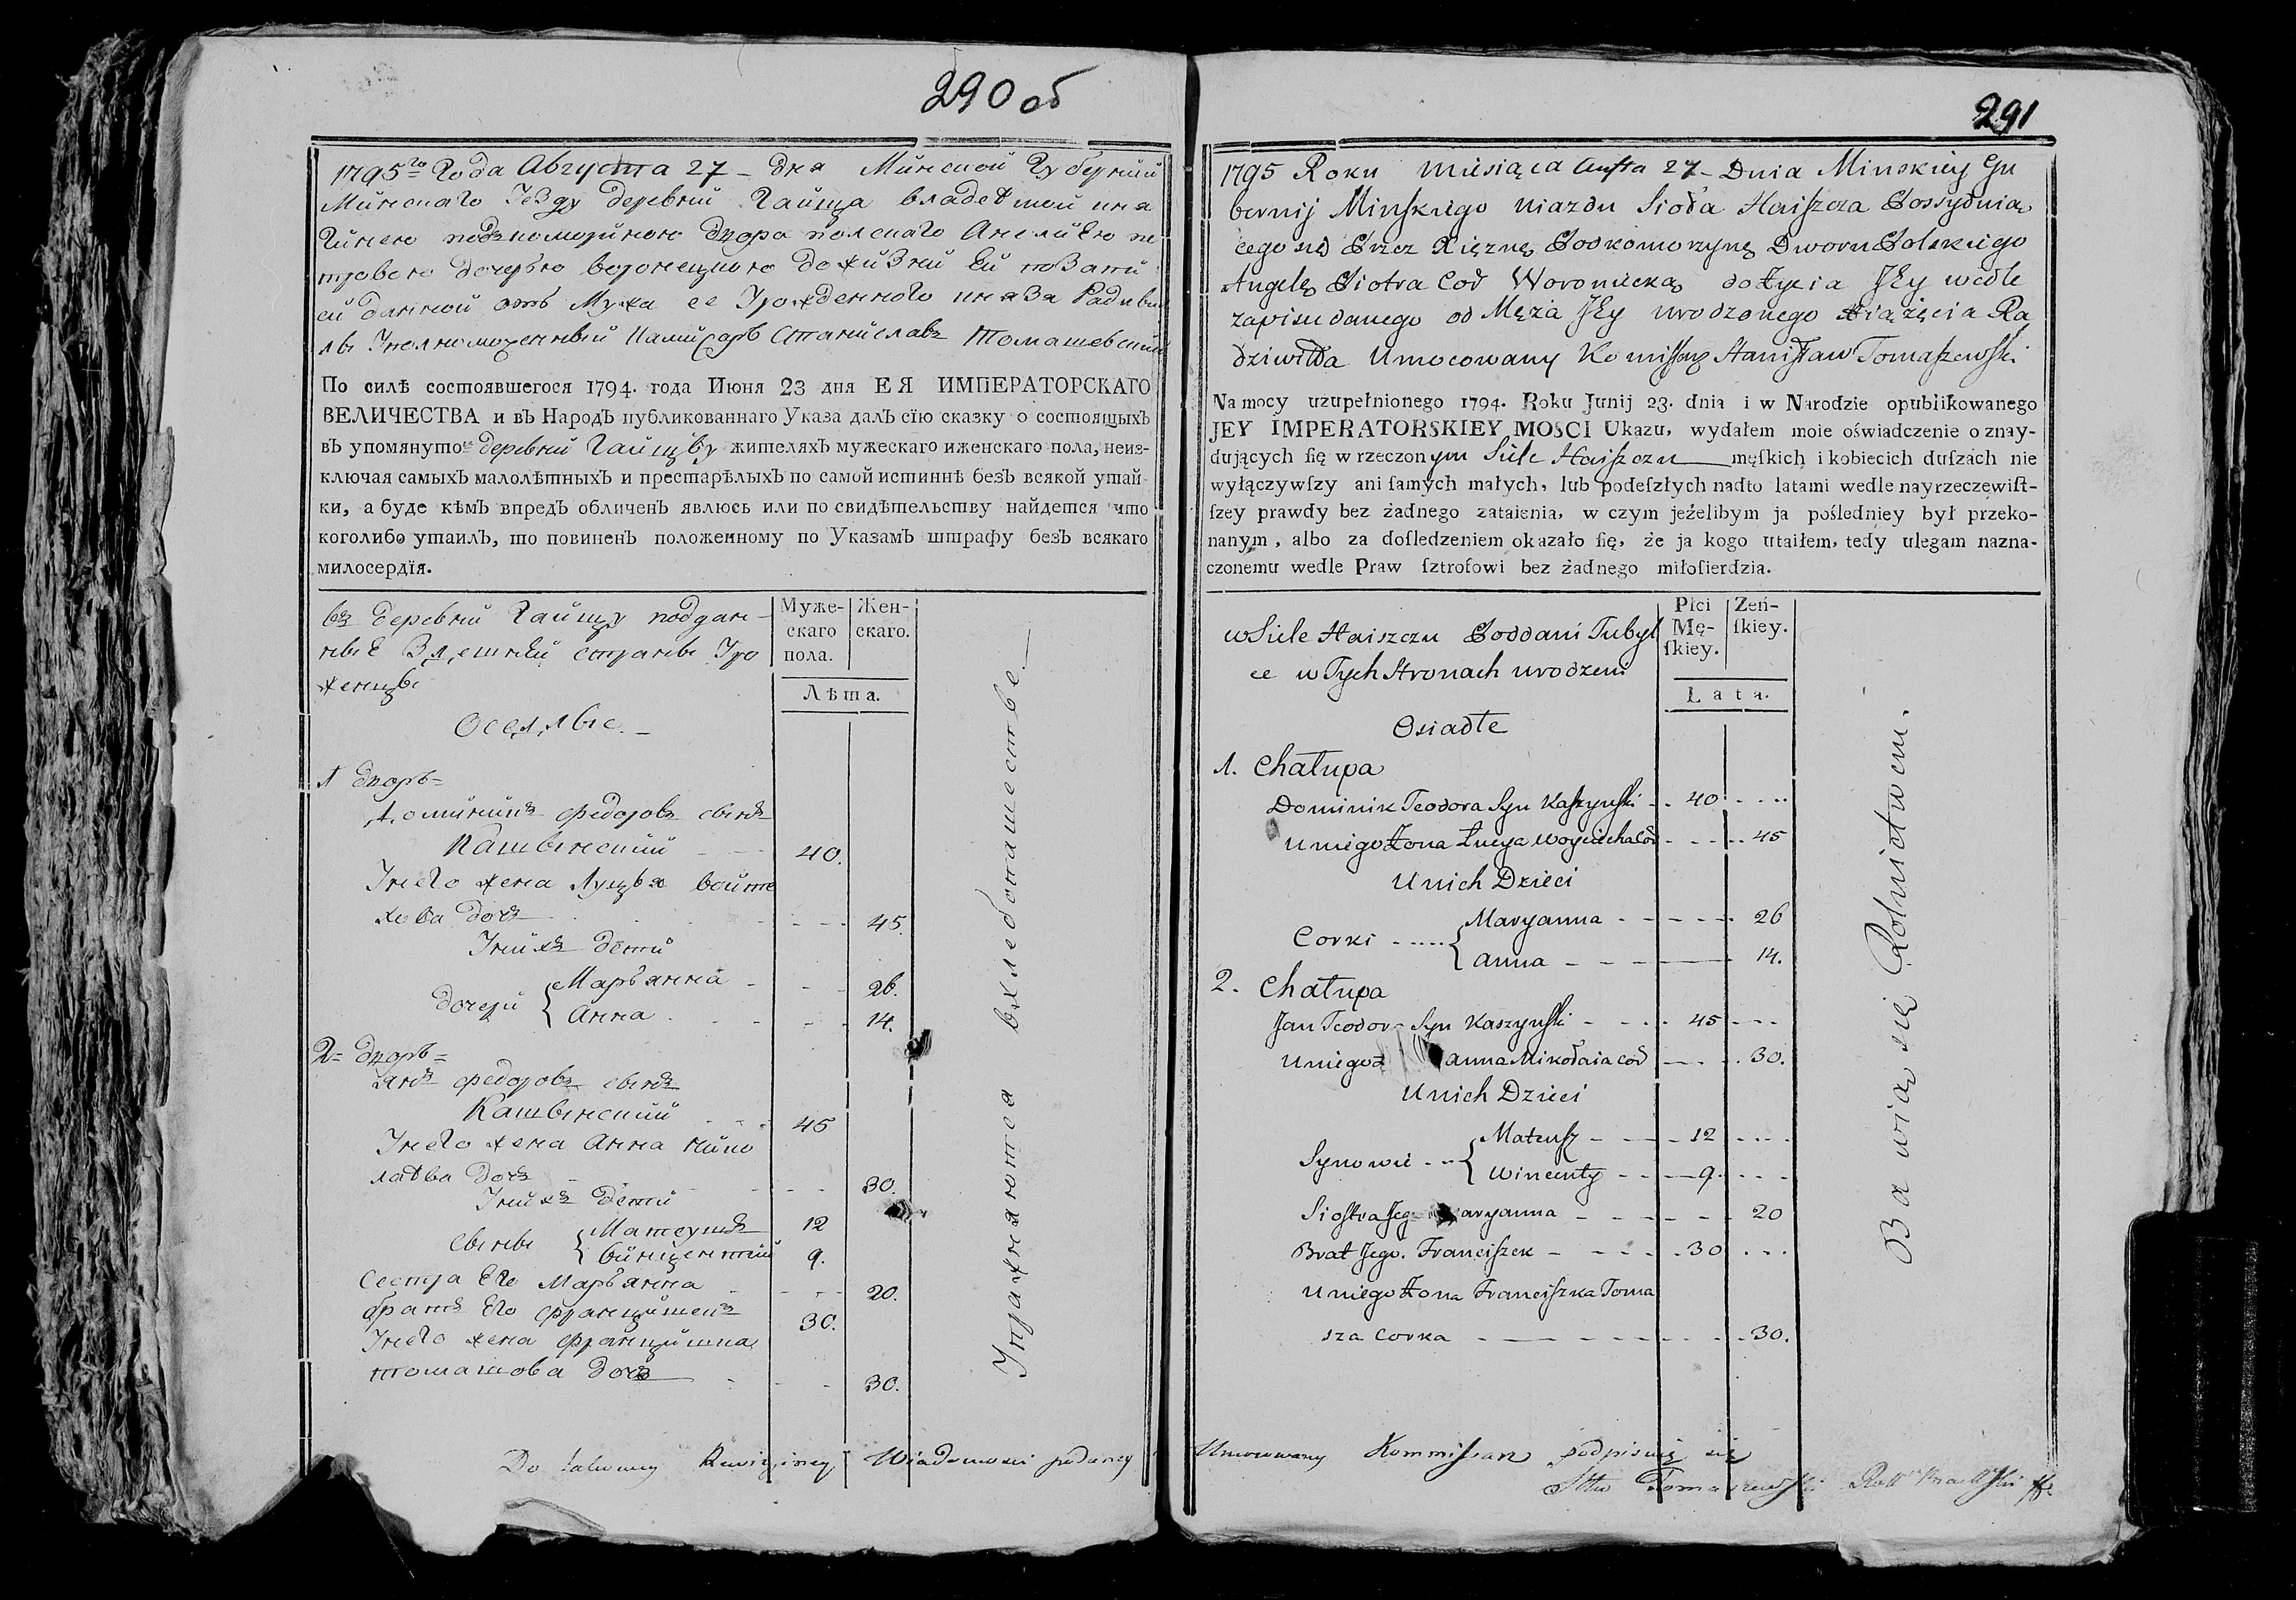 290 об
1795го Года Августа 27 - дня Минской Губерний
Минскаго Уезду деревни Гайща владеемой кня
гинею подкомориною двора полскаго Анелиею пе
тровою дочерью воронецкою дожизней ей по запи
си данной отъ Мужа ее Урожденного князя Радивил
лы Уполномоченный Камисаръ Станиславъ Томашевский
По силѣ состоявшегося 1794. года Июня 23 дня ЕЯ ИМПЕРАТОРСКАГО
ВЕЛИЧЕСТВА и въ Народъ публикованнаго Указа далъ сїю сказку о состоящыхъ
въ упомянутой деревни Гайщу жителяхъ мужескаго иженскаго пола, неиз-
ключая самыхъ малолѣтныхъ и престарѣлыхъ по самой истиннѣ безъ всякой утай-
ки, а буде кѣмъ впредъ обличенъ явлюсь или по свидѣтельству найдется что
коголибо утаилъ, то повиненъ положенному по Указамъ штрафу безъ всякаго
милосердїя.
въ деревни Гайщу поддан-
ные Здешней страны Уро
женцы
Муже-
скаго
пола.
Жен-
скаго.
Лѣта.
Оселлые.
1 дворъ=
Доминикъ федоровъ сынъ
Кашынский 40.
Унего жена Луцыя войте
хова дочъ 45.
Унихъ дети
дочери { Марьянна 26.
Анна 14.
2= дворъ=
Янъ федоровъ сынъ
Кашынский 45
Унего жена Анна мико
лаева дочъ 30.
Унихъ дети
сыны { Матеушъ 12
винцентий 9.
Сестра Его Марьянна 20.
братъ Его францишекъ 30.
Унего жена францишка
томашова дочъ 30.
Упражняются вхлебопашестве.
Do takowey Rewizyiney Wiadomosci podaney
291
1795 Roku miesiąca Augsta 27 - Dnia Minskiey Gu
bernij Minskiego uiazdu Sioła Haiszcza Possyduią
cego się Przez Xiężnę Podkomorzynę Dworu Polskiego
Angelę Piotra Cor Woronieckę dożycia Jey wedle
zapisu danego od Męża Jey urodzonego Xiążęcia Ra
dziwiłła Umocowany Komissarz Stanisław Tomaszewski
Na mocy uzupełnionego 1794. Roku Junij 23. dnia i w Narodzie opublikowanego
JEY IMPERATORSKIEY MOSCI Ukazu, wydałem moie oświadczenie o znay-
dujących ſię w rzeczonym Siele Haiszczu męſkich i kobiecich duſzach nie
wyłączywſzy ani ſamych małych, lub podeſzłych nadto latami wedle nayrzeczewiſt-
ſzey prawdy bez żadnego zataienia, w czym jeżelibym ja pośledniey był przeko-
nanym, albo za doſledzeniem okazało ſię, że ja kogo utaiłem, tedy ulegam nazna-
czonemu wedle Praw ſztrofowi bez żadnego miłoſierdzia.
w Siele Haiszczu Poddani Tubyl
ce w Tych Stronach urodzeni
Płci
Mę-
ſkiey.
Zeń-
ſkiey.
Lata.
Osiadłe
1. Chałupa
Dominik Teodora Syn Kaszynski 40
Uniego Żona Łucya Woyciecha Cor 45
Unich Dzieci
Corki { Maryanna 26
Anna 14.
2. Chałupa
Jan Teodor Syn Kaszynski 45
Uniego Anna Mikołaia Cor 30.
Unich Dzieci
Synowie { Mateusz 12
Wincenty 9.
Siostra Jeg aryanna 20
Brat Jego. Franciszek 30
Uniego Żona Franciszka Toma
sza Corka 30.
Bawią się Rolnictwem.
Umocowany Kommissarz podpisuię się
Stw Tomaszewski